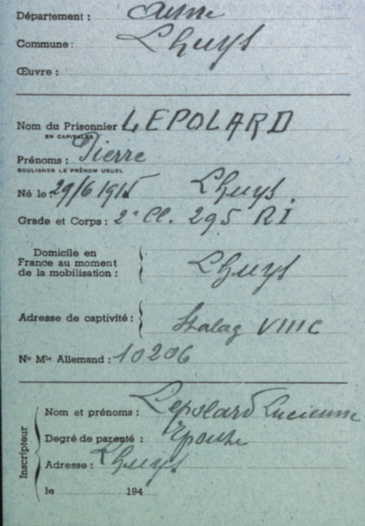 Département : Aisne
Commune : Lhuys
Œuvre :
Nom du Prisonnier LEPOLARD
EN CAPITALES
Prénoms : Pierre
SOULIGNER LE PRÉNOM USUEL
Né le 29/6 1915 Lhuys.
Grade et Corps : 2e Cl. 295 RI
Domicile en
France au moment
de la mobilisation : Lhuys
Adresse de captivité : Stalag VIIIC
No Mle Allemand : 10206
Inscripteur
Nom et prénoms : Lepolard Lucienne
Degré de parenté : Épouse
Adresse : Lhuys
le 194